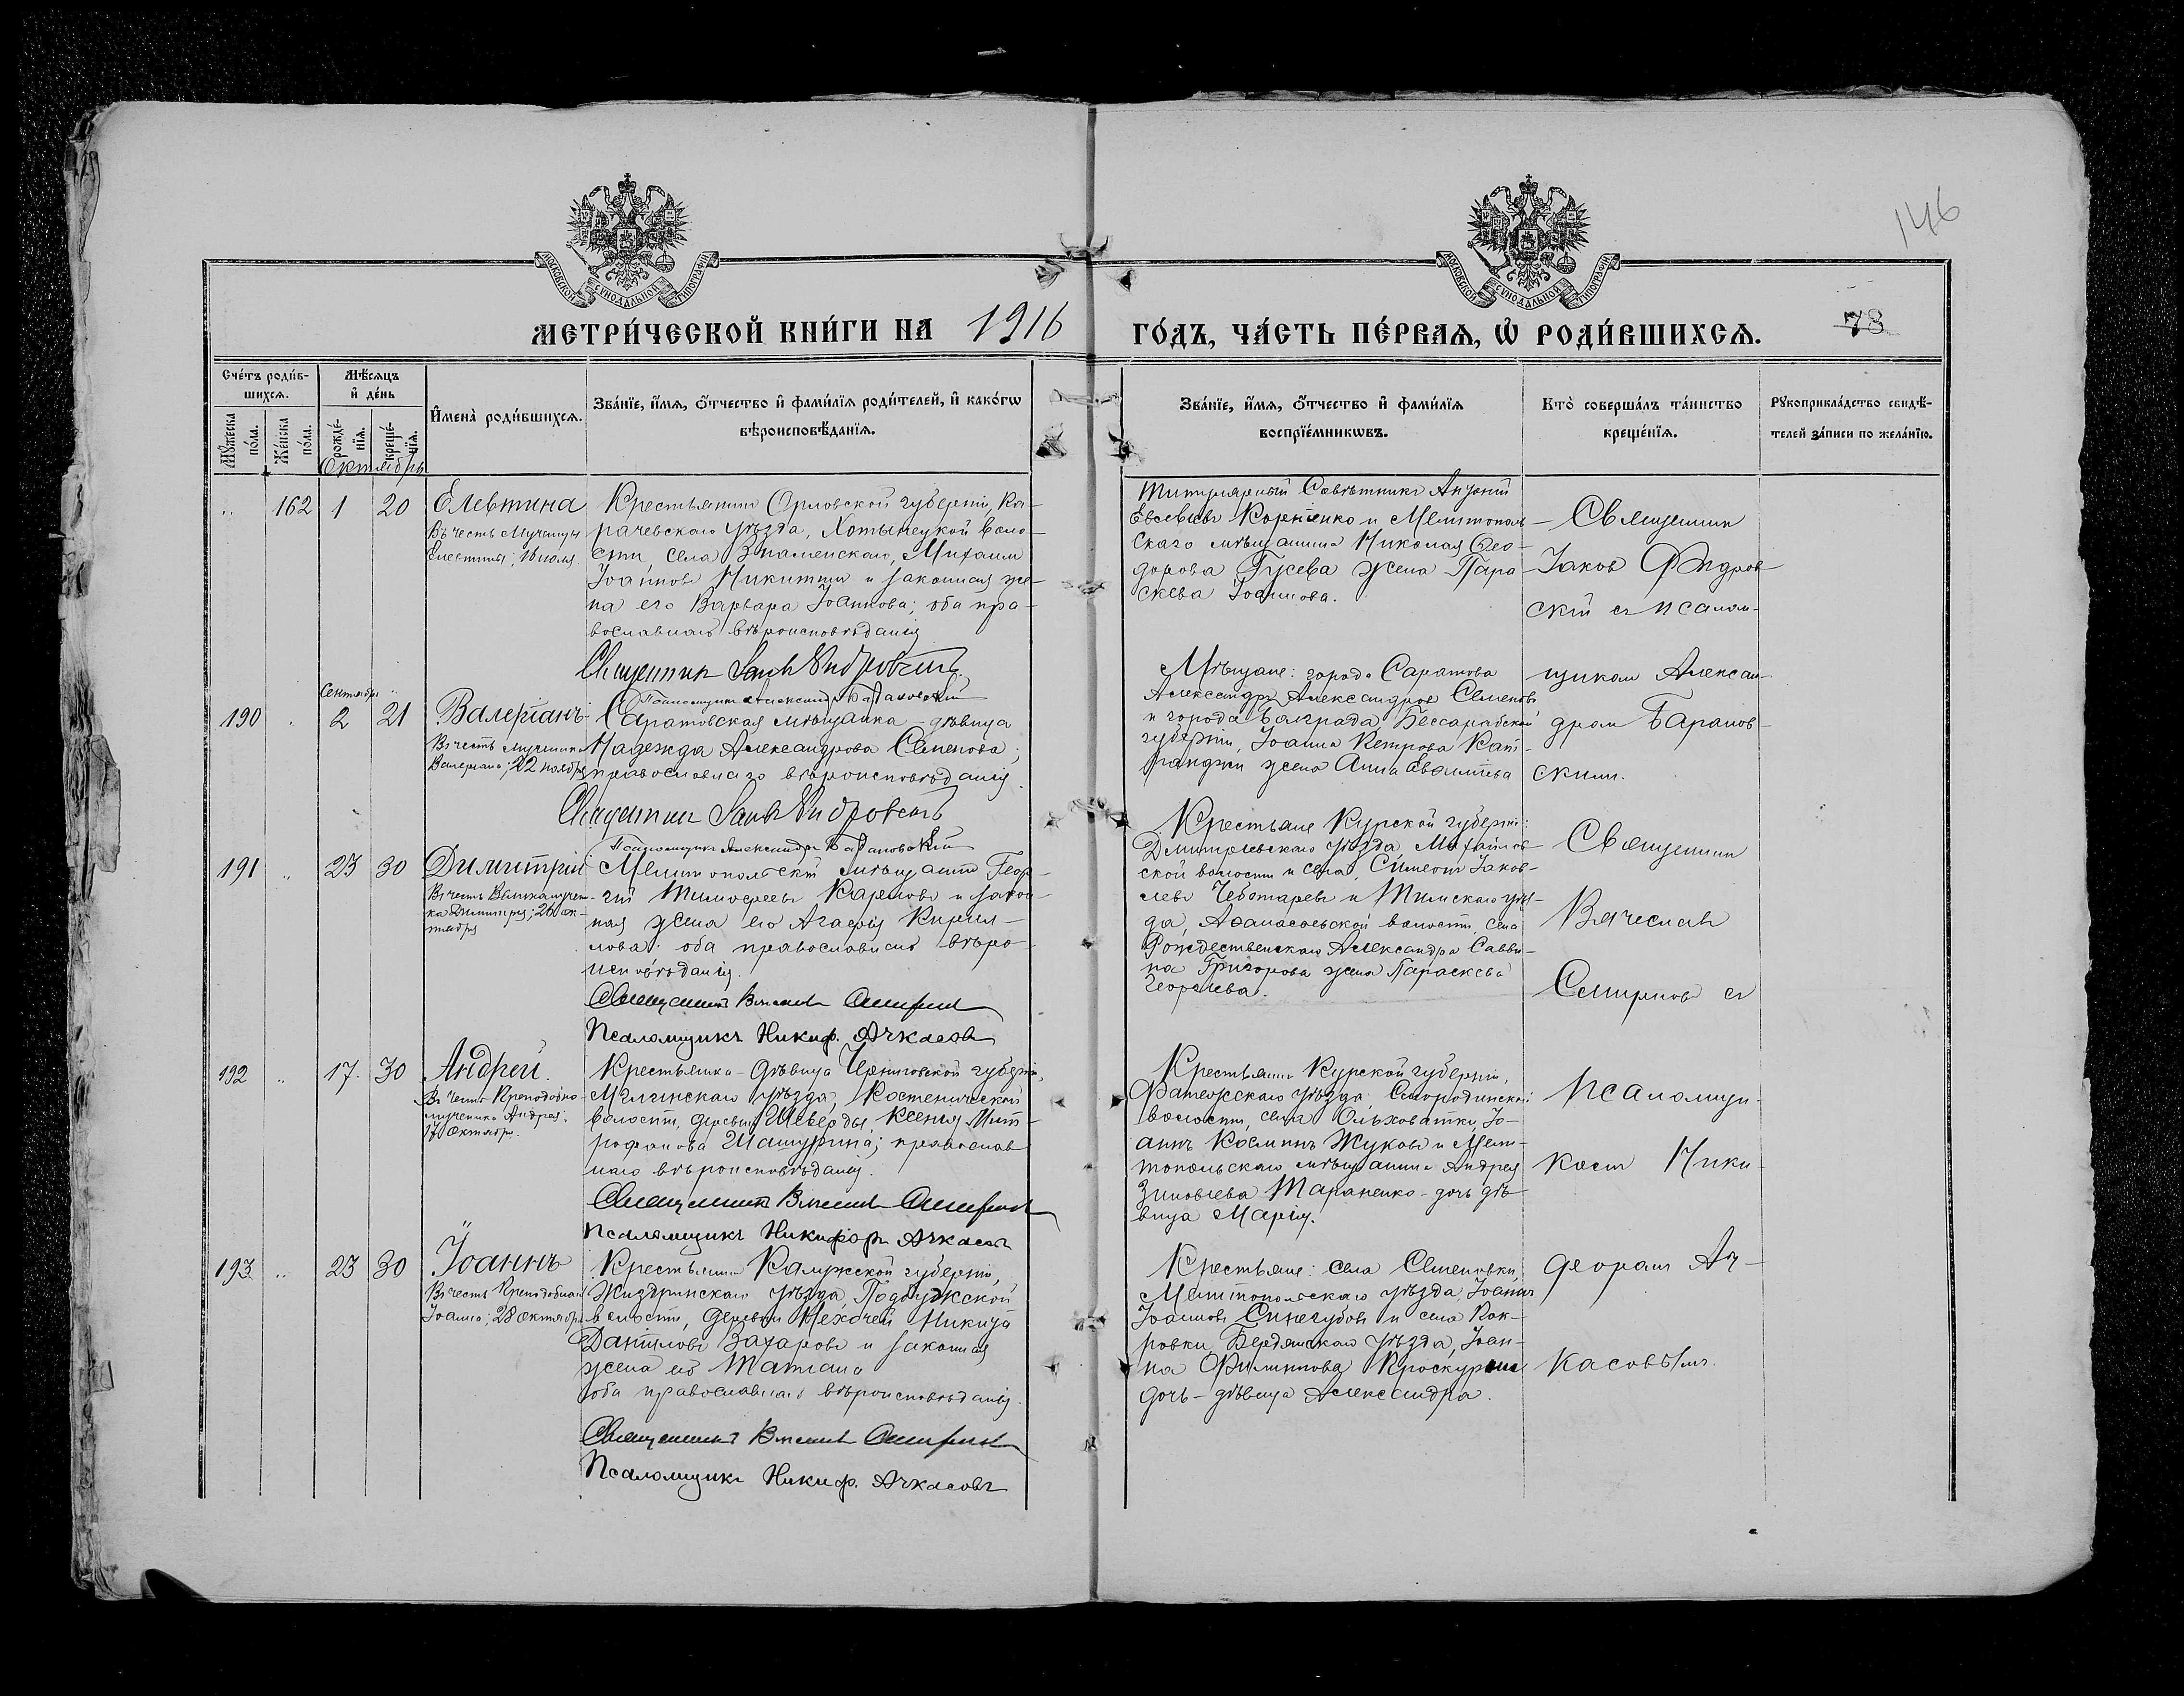 146
МОСКОВСКОЙ СѴНОДАЛЬНОЙ ТИПОГРАФІИ
МОСКОВСКОЙ СѴНОДАЛЬНОЙ ТИПОГРАФІИ
МЕТРИ́ЧЕСКОЙ КНИ́ГИ НА 1916 ГО́ДЪ, ЧА́СТЬ ПЕ́РВАѦ, Ѡ҆ РОДИ́ВШИХСѦ. 78
Сче́тъ роди́в-
шихсѧ.
Мѹ́жеска по́ла.
Же́нска по́ла.
Мѣ́сѧцъ и҆ де́нь
рожде́-нїѧ.
креще́-нїѧ.
И҆мена̀ роди́вшихсѧ.
Зва́нїе, и҆́мѧ, ѻ҆́тчество и҆ фами́лїѧ роди́телей, и҆ како́гѡ
вѣроисповѣ́данїѧ.
Зва́нїе, и҆́мѧ, ѻ҆́тчество и҆ фами́лїѧ
воспрїе́мникѡвъ.
Кто̀ соверша́лъ та́инство
креще́нїѧ.
Рѹкоприкла́дство свидѣ́-
телей за́писи по жела́нїю.
Октябрь
162 1 20 Елевтина
Въ честь Мученицы
Елевтины; 16 іюля
Крестьянинъ Орловской губерніи, Ка-
рачевскаго уѣзда, Хотынецкой воло-
сти, села Знаменскаго, Михаилъ
Іоанновъ Никитинъ и законная же-
на его Варвара Іоаннова; оба пра-
вославнаго вѣроисповѣданія
Священникъ Іаковъ Ѳидровскій
Псаломщикъ Александръ Барановскій
Титулярный Совѣтникъ Антоній
Евсевіевъ Корніенко и Мелитополь-
скаго мѣщанина Николая Ѳео-
дорова Гусева жена Пара-
скева Іоаннова.
Священникъ
Іаковъ Ѳидров-
скій съ псалом-
щикомъ Алексан-
дромъ Баранов-
скимъ.
Сентябрь
190 2 21 Валеріанъ
Въ честь мученика
Валеріана; 22 ноября
Саратовская мѣщанка-дѣвица
Надежда Александрова Семенова;
православнаго вѣроисповѣданія.
Священникъ Іаковъ Ѳидровскій
Псаломщикъ Александръ Барановскій
Мѣщане: города Саратова
Александръ Александровъ Семеновъ
и города Болграда, Бессарабской
губерніи, Іоанна Петрова
жена Анна
191 23 30 Димитрій
Въ честь Великомучен-
ка Димитрія; 26 ок-
тября
Мелитопольскій мѣщанинъ Геор-
гій Тимоѳеевъ Карповъ и закон-
ная жена его Агаѳія Кирил-
лова; оба православнаго вѣро-
исповѣданія.
Священникъ Вячеславъ Смирновъ
Псаломщикъ Никиф. Ачкасовъ
Крестьяне Курской губерніи:
Дмитріевскаго уѣзда, Михайлов-
ской волости и села, Симеонъ Іаков-
левъ Чеботаревъ и Тимскаго уѣз-
да, Аѳанасьевской волости, села
Рождественскаго Александра Савви-
на Григорова жена Параскева
Георгіева.
Священникъ
Вячеславъ
Смирновъ съ
псаломщи-
комъ Ники-
форомъ Ач-
касовымъ.
192 17. 30 Андрей.
Въ честь Преподобно-
мученика Андрея;
17 Октября.
Крестьянка-дѣвица Черниговской губерніи,
Мглинскаго уѣзда, Костеничской
волости, деревни Шеверды, Ксенія Мит-
рофанова Шашурина; православ-
наго вѣроисповѣданія.
Священникъ Вячеславъ Смирновъ
Псаломщикъ Никифоръ Ачкасовъ
Крестьянинъ Курской губерніи,
Фатежскаго уѣзда Смородинской
волости, села Ольховатки, Іо-
аннъ Косминъ Жуковъ и Мели-
топольскаго мѣщанина Андрея
Зиновіева Тараненко-дочь дѣ-
вица Марія.
193 23 30 Іоаннъ
Въ честь Преподобнаго
Іоанна; 28 октября
Крестьянинъ Калужской губерніи,
Жиздринскаго уѣзда, Подбужской
волости, деревни Мехочей Никита
Даніиловъ Захаровъ и законная
жена его Татіана
оба православнаго вѣроисповѣданія.
Священникъ Вячеславъ Смирновъ
Псаломщикъ Никиф. Ачкасовъ
Крестьяне: села Семеновки,
Мелитопольскаго уѣзда, Іоаннъ
Іоанновъ Синегубовъ и села Пок-
ровки, Бердянскаго уѣзда, Іоан-
на Филиппова Проскурни
дочь-дѣвица Александра.